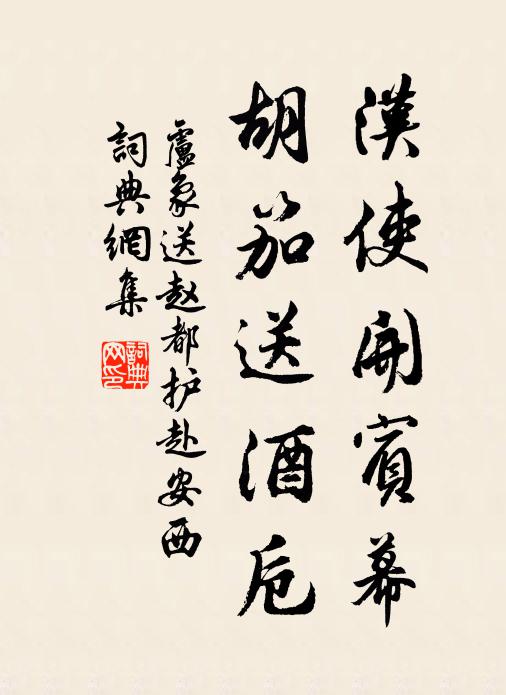 漢使開賓幕
胡笳送酒卮
盧象送赵都护赴安西
詞典網集
詞典網印